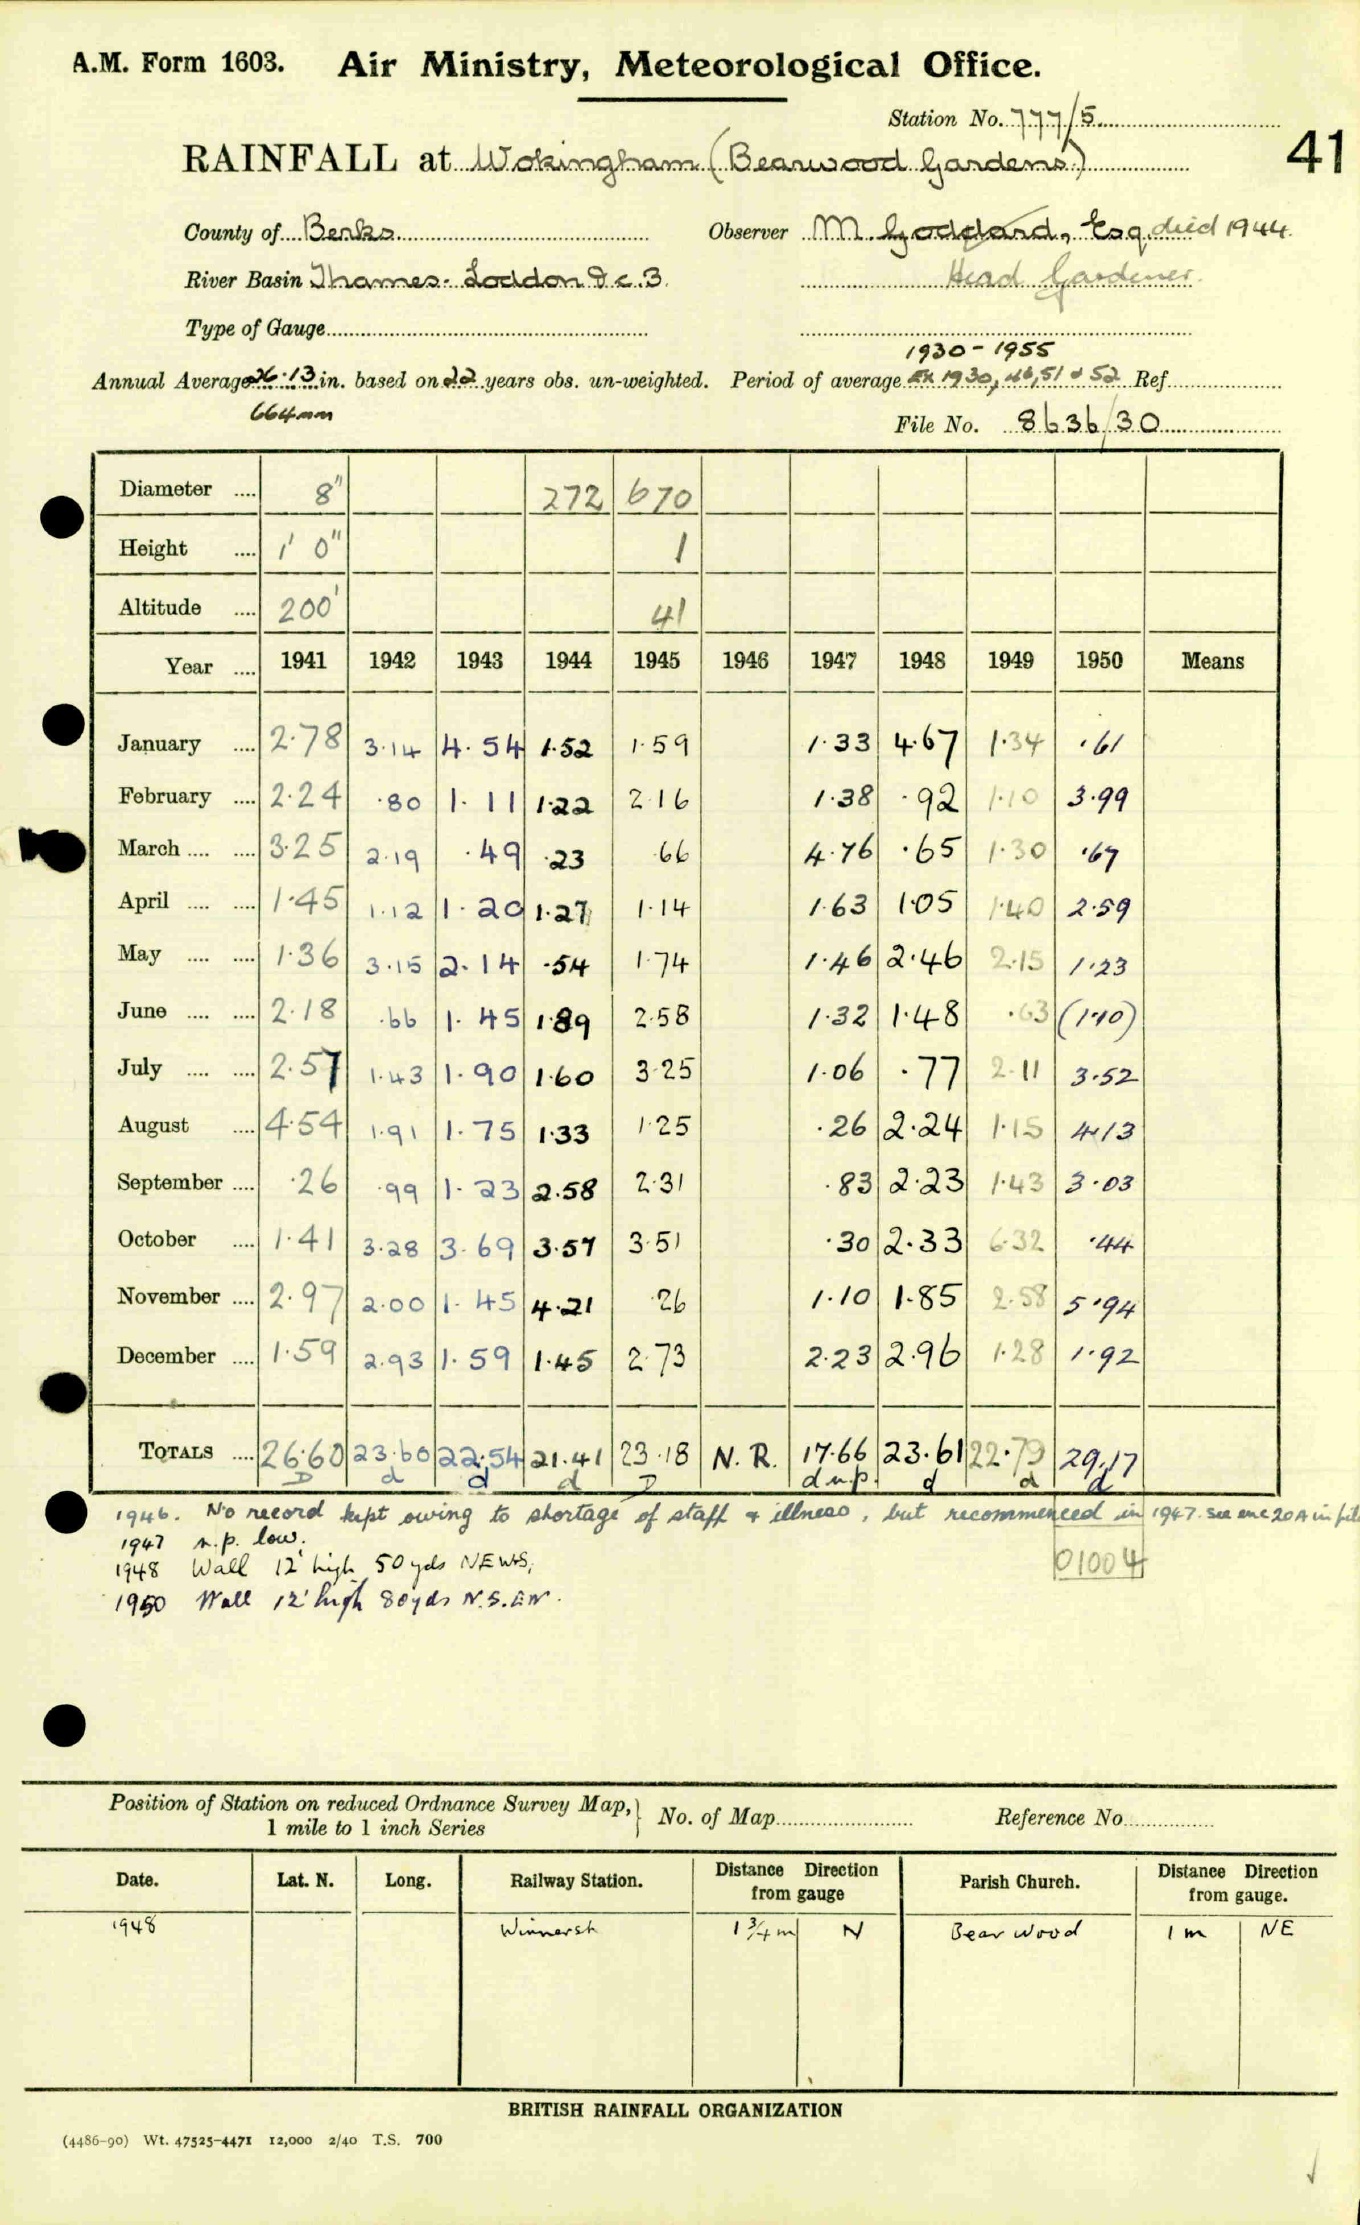 A.M. Form 1603. Air Ministry, Meteorological Office.
Station No. 777/5
41
RAINFALL at Wokingham (Bearwood Gardens)
County of Berks. Observer M. Goddard, Esq. died 1944.
River Basin Thames-Loddon &c. 3. Head Gardener.
Type of Gauge
1930-1955
Annual Average 26.13 in. based on 22 years obs. un-weighted. Period of average Ex 1930, 46, 51 & 52 Ref
664mm
File No. 8636/30
Diameter .... 8" 272 670
Height .... 1' 0" 1
Altitude .... 200' 41
Year .... 1941 1942 1943 1944 1945 1946 1947 1948 1949 1950 Means
January .... 2.78 3.14 4.54 1.52 1.59 1.33 4.67 1.34 .61
February .... 2.24 .80 1.11 1.22 2.16 1.38 .92 1.10 3.99
March .... .... 3.25 2.19 .49 .23 .66 4.76 .65 1.30 .67
April .... .... 1.45 1.12 1.20 1.27 1.14 1.63 1.05 1.40 2.59
May .... .... 1.36 3.15 2.14 .54 1.74 1.46 2.46 2.15 1.23
June .... .... 2.18 .66 1.45 1.89 2.58 1.32 1.48 .63 (1.10)
July .... .... 2.57 1.43 1.90 1.60 3.25 1.06 .77 2.11 3.52
August .... 4.54 1.91 1.75 1.33 1.25 .26 2.24 1.15 4.13
September .... .26 .99 1.23 2.58 2.31 .83 2.23 1.43 3.03
October .... 1.41 3.28 3.69 3.57 3.51 .30 2.33 6.32 .44
November .... 2.97 2.00 1.45 4.21 .26 1.10 1.85 2.58 5.94
December .... 1.59 2.93 1.59 1.45 2.73 2.23 2.96 1.28 1.92
TOTALS .... 26.60 23.60 22.54 21.41 23.18 N.R. 17.66 23.61 22.79 29.17
D d d d D d n.p. d d d
1946. No record kept owing to shortage of staff & illness, but recommenced in 1947. see enc 20A in file
1947 n.p. low.
1948 Wall 12' high 50 yds NEWS.
01004
1950 Wall 12' high 80yds N.S.EW.
Position of Station on reduced Ordnance Survey Map,} No. of Map Reference No.
1 mile to 1 inch Series
Date. Lat. N. Long. Railway Station. Distance Direction from gauge Parish Church. Distance Direction from gauge.
1948 Winnersh 1 3/4 m N Bear Wood 1 m NE
BRITISH RAINFALL ORGANIZATION
(4486-90) Wt. 47525-4471 12,000 2/40 T.S. 700